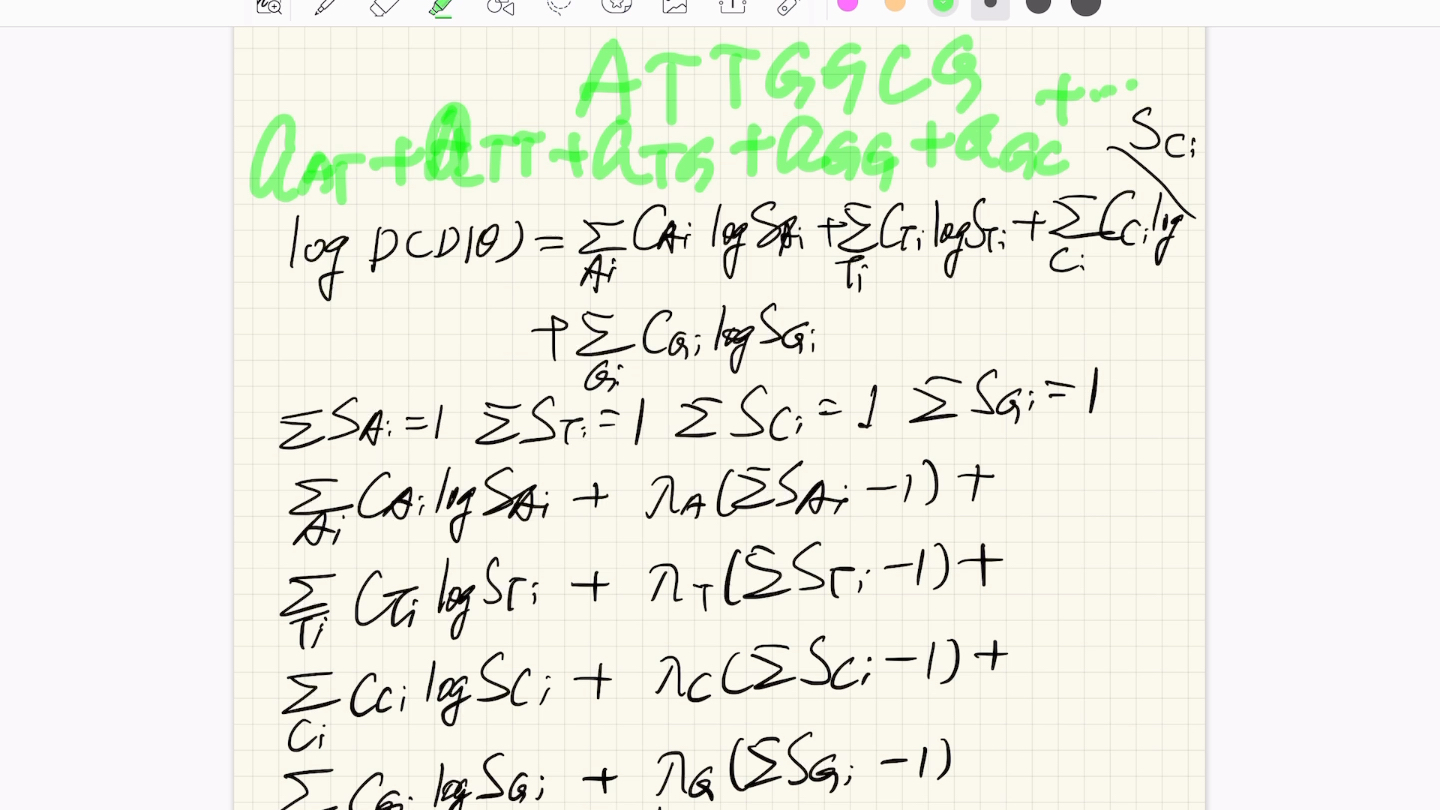 ATTGGCG
a_AT + a_TT + a_TG + a_GG + a_GC + ...
S_Ci
log P(D|θ) = Σ_Ai C_Ai log S_Ai + Σ_Ti C_Ti log S_Ti + Σ_Ci C_Ci log
+ Σ_Gi C_Gi log S_Gi
Σ S_Ai = 1 Σ S_Ti = 1 Σ S_Ci = 1 Σ S_Gi = 1
Σ_Ai C_Ai log S_Ai + λ_A (Σ S_Ai - 1) +
Σ_Ti C_Ti log S_Ti + λ_T (Σ S_Ti - 1) +
Σ_Ci C_Ci log S_Ci + λ_C (Σ S_Ci - 1) +
Σ C_Gi log S_Gi + λ_G (Σ S_Gi - 1)